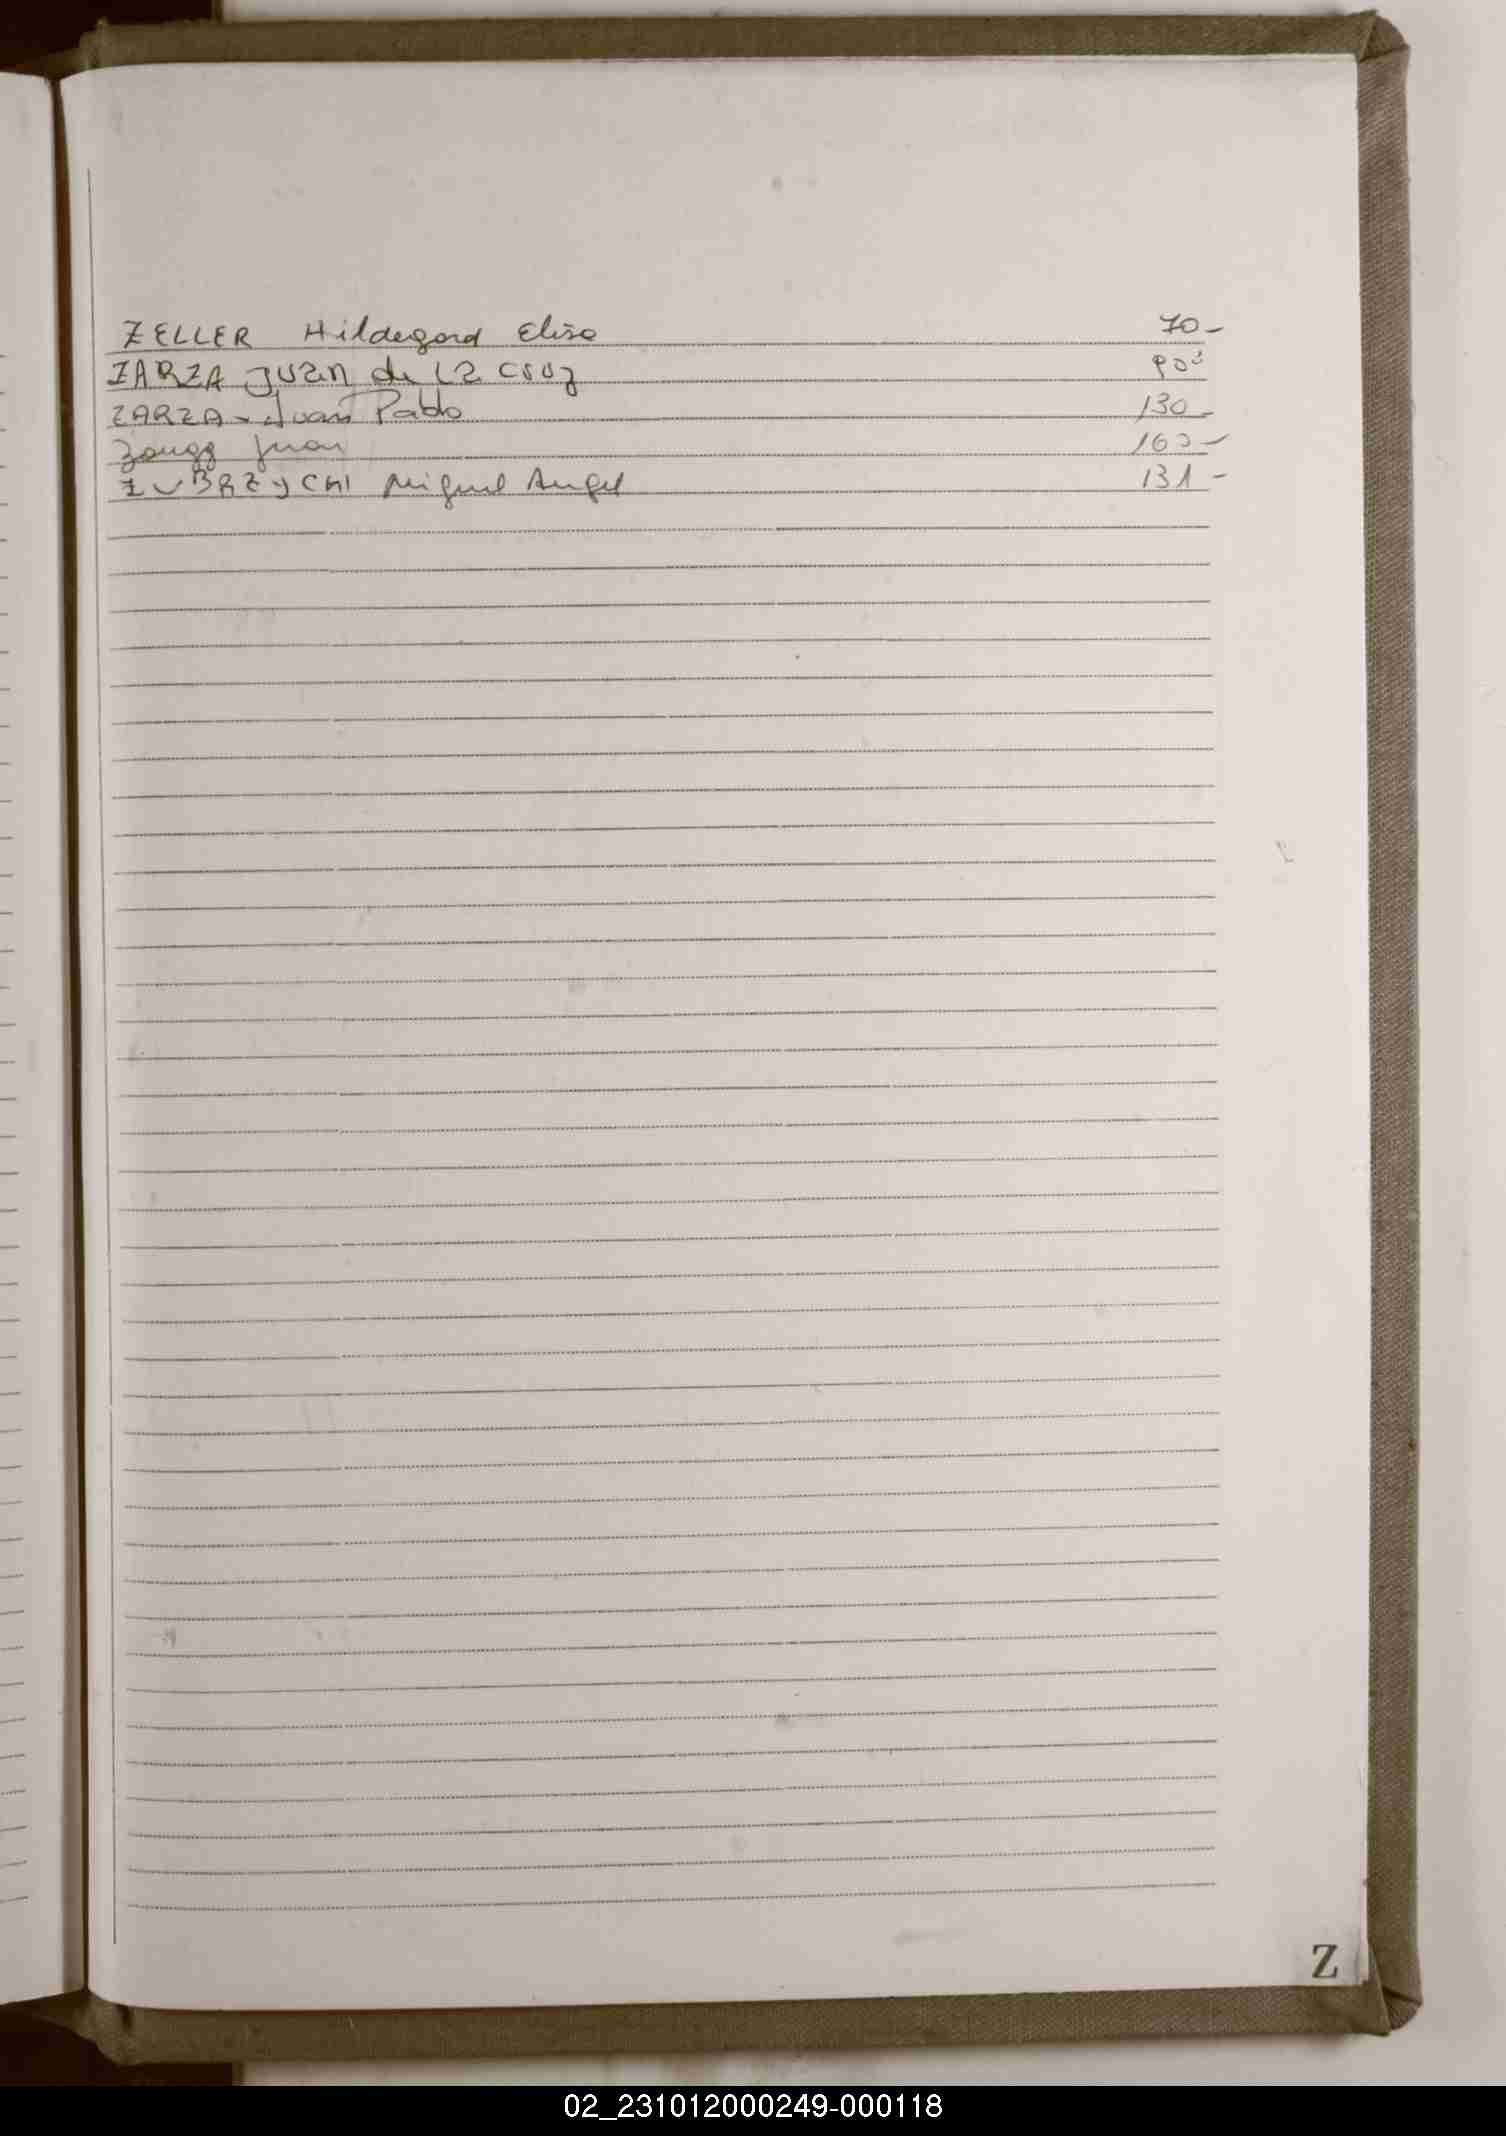 ZELLER Hildegard Elisa 70-
ZARZA Juan de la Cruz 90
ZARZA - Juan Pablo 130-
Zaugg Juan 160-
ZUBRZYCHI Miguel Angel 131-
Z
02_231012000249-000118